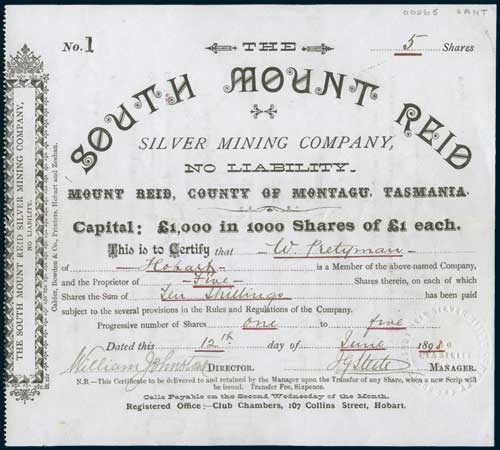 00265 CANT
No. 1
THE
5 Shares
SOUTH MOUNT REID
SILVER MINING COMPANY,
NO LIABILITY.
MOUNT REID, COUNTY OF MONTAGU, TASMANIA.
Capital: £1,000 in 1000 Shares of £1 each.
This is to Certify that W. Pretyman
of Hobart is a Member of the above-named Company,
and the Proprietor of Five Shares therein, on each of which
Shares the Sum of Ten Shillings has been paid
subject to the several provisions in the Rules and Regulations of the Company.
Progressive number of Shares one to five
Dated this 12th day of June 1898
William Johnston DIRECTOR. MANAGER.
N.B.—This Certificate to be delivered to and retained by the Manager upon the Transfer of any Share, when a new Scrip will
be issued. Transfer Fee, Sixpence.
Calls Payable on the Second Wednesday of the Month.
Registered Office:—Club Chambers, 107 Collins Street, Hobart.
THE SOUTH MOUNT REID SILVER MINING COMPANY,
NO LIABILITY.
Calder, Bowden & Co., Printers, Hobart and Zeehan.
LIABILITY